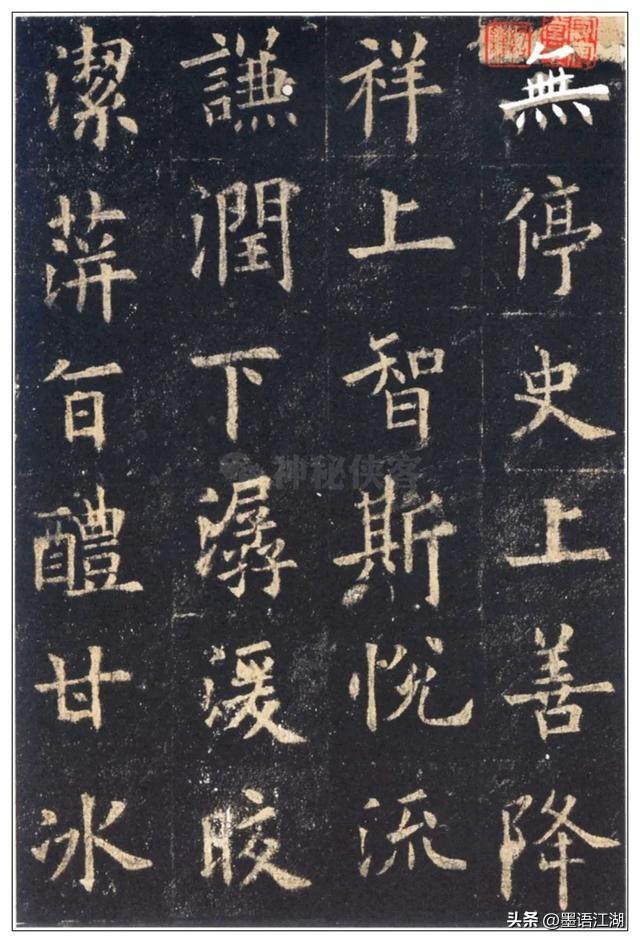 無停史上善降
祥上智斯悦流
謙潤下潺湲皎
潔蓱旨醴甘冰
神秘侠客
头条 @墨语江湖